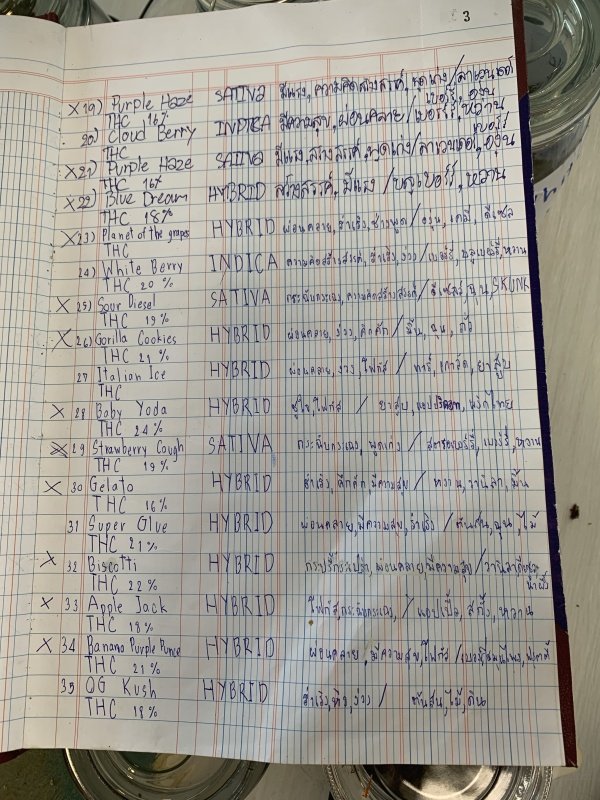 3
X 19) Purple Haze SATIVA มีแรง, ความคิดสร้างสรรค์, พูดเก่ง / ลาเวนเดอร์
THC 16% เบอร์รี่, องุ่น
20) Cloud Berry INDICA มีความสุข, ผ่อนคลาย / เบอร์รี่, หวาน
THC เบอร์รี่
X 21) Purple Haze SATIVA มีแรง, สร้างสรรค์, พูดเก่ง / ลาเวนเดอร์, องุ่น
THC 16%
X 22) Blue Dream HYBRID สร้างสรรค์, มีแรง / บลูเบอร์รี่, หวาน
THC 18%
X 23) Planet of the grapes HYBRID ผ่อนคลาย, ร่าเริง, ช่างพูด / องุ่น, เคมี, ดีเซล
THC
24) White Berry INDICA ความคิดสร้างสรรค์, ร่าเริง, ง่วง / เบอร์รี่, บลูเบอร์รี่, หวาน
THC 20%
X 25) Sour Diesel SATIVA กระฉับกระเฉง, ความคิดสร้างสรรค์ / ดีเซล, ฉุน, SKUNK
THC 19%
X 26) Gorilla Cookies HYBRID ผ่อนคลาย, ง่วง, คึกคัก / มิ้น, ฉุน, ถั่ว
THC 21%
27 Italian Ice HYBRID ผ่อนคลาย, ง่วง, โฟกัส / ยาสูบ
THC
X 28 Baby Yoda HYBRID ชูใจ, โฟกัส / ยาสูบ, พริกไทย
THC 24%
X 29 Strawberry Cough SATIVA กระฉับกระเฉง, พูดเก่ง / สตรอเบอร์รี่, เบอร์รี่, หวาน
THC 19%
X 30 Gelato HYBRID ร่าเริง, คึกคัก, มีความสุข / หวาน, วานิลา, มิ้น
THC 16%
31 Super Glue HYBRID ผ่อนคลาย, มีความสุข, ร่าเริง / ต้นสน, ฉุน, ไม้
THC 21%
X 32 Biscotti HYBRID กระปรี้กระเปร่า, ผ่อนคลาย, มีความสุข / วานิลา
THC 22% น้ำผึ้ง
X 33 Apple Jack HYBRID โฟกัส, กระฉับกระเฉง, / แอปเปิ้ล, สกั้ง, หวาน
THC 19%
X 34 Banana Purple Punce HYBRID ผ่อนคลาย, มีความสุข, โฟกัส /
THC 21%
35 OG Kush HYBRID ร่าเริง, หิว, ง่วง / ต้นสน, ไม้, ดิน
THC 18%